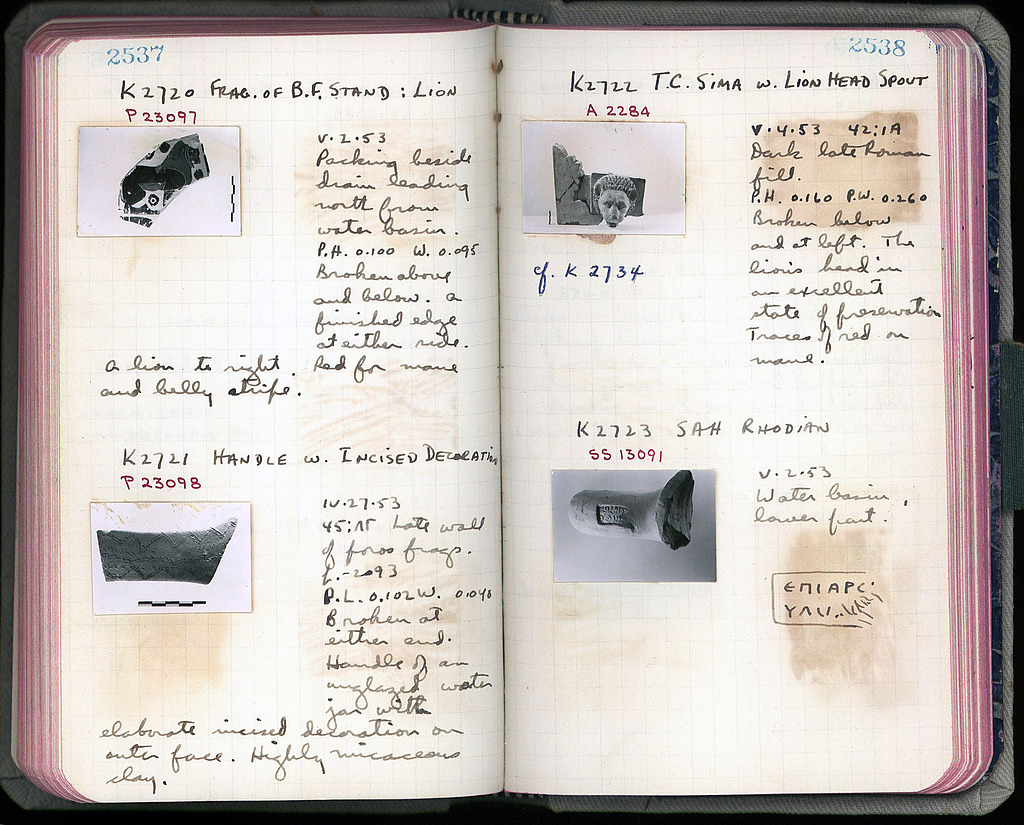 2537
K2720 FRAG. OF B.F. STAND : LION
P 23097
V.2.53
Packing beside
drain leading
north from
water basin.
P.H. 0.100 W. 0.095
Broken above
and below. a
finished edge
at either side.
a lion to right. Red for mane
and belly stripe.
K2721 HANDLE W. INCISED DECORATION
P 23098
IV.27.53
45: Late wall
of poros frags.
P.L. 0.102 W. 0.040
Broken at
either end.
Handle of an
unglazed water
jar with
elaborate incised decoration on
outer face. Highly micaceous
clay.
2538
K2722 T.C. SIMA W. LION HEAD SPOUT
A 2284
V.4.53 42:1A
Dark late Roman
fill.
P.H. 0.160 P.W. 0.260
Broken below
and at left. The
lion's head in
an excellent
state of preservation
Traces of red on
mane.
cf. K 2734
K2723 SAH RHODIAN
SS 13091
V.2.53
Water basin,
lower part.
ΕΠΙ ΑΡΣ